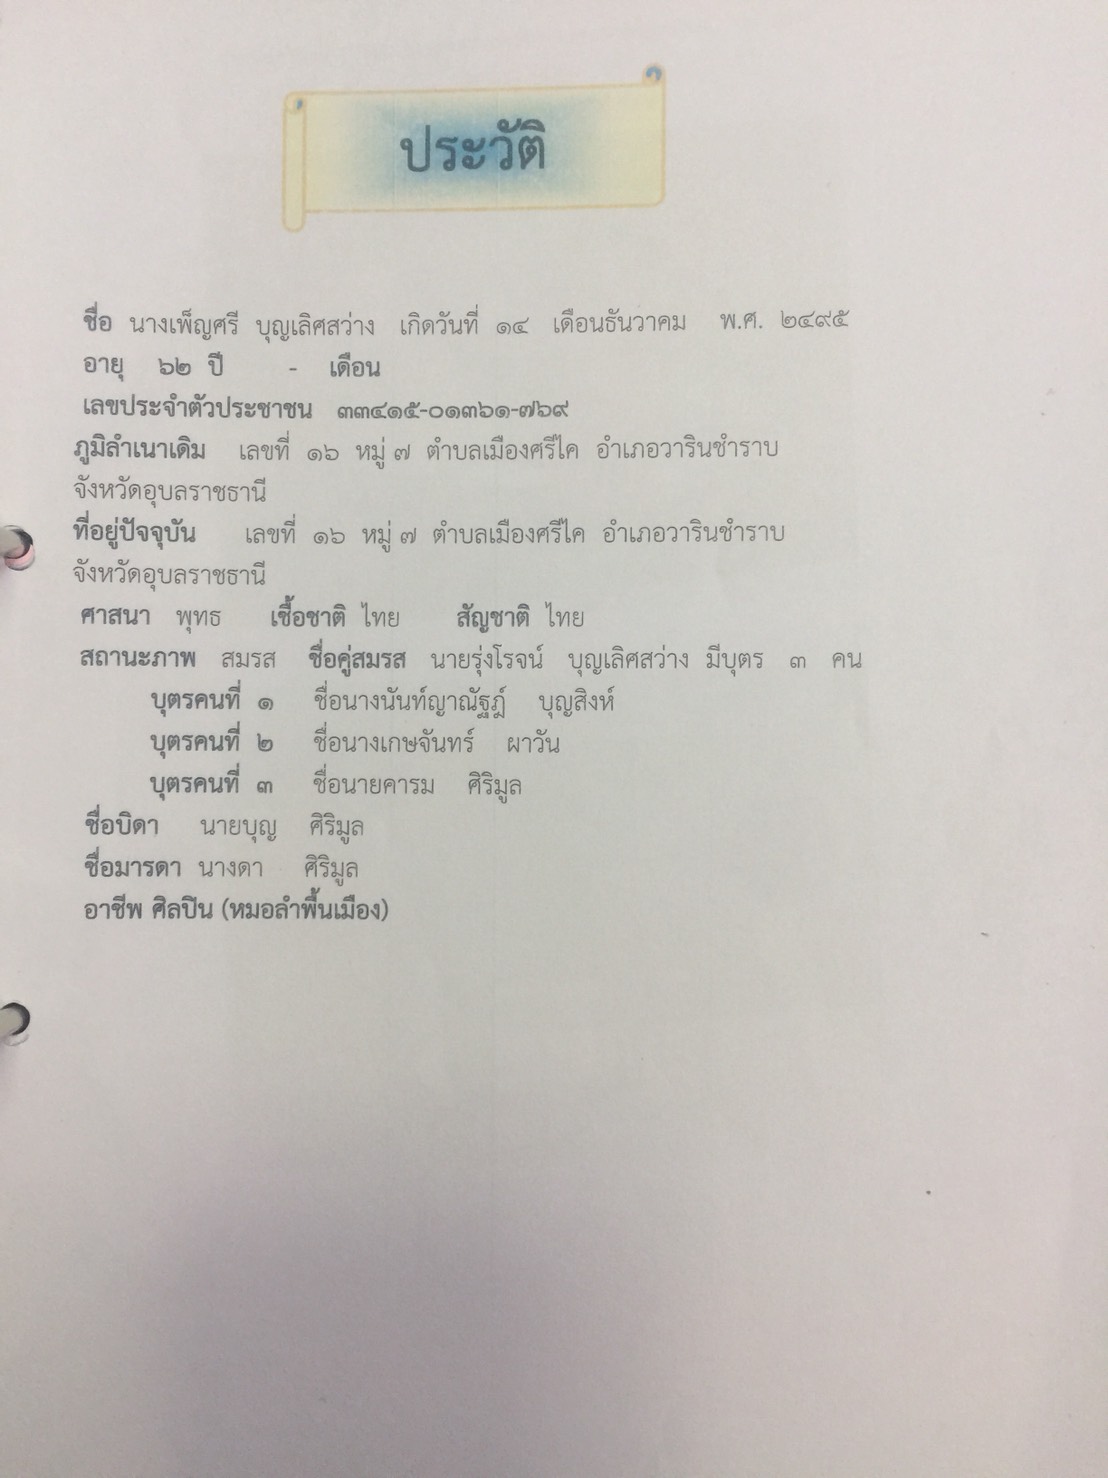 ประวัติ
ชื่อ นางเพ็ญศรี บุญเลิศสว่าง เกิดวันที่ ๑๔ เดือนธันวาคม พ.ศ. ๒๔๙๕
อายุ ๖๒ ปี - เดือน
เลขประจำตัวประชาชน ๓๓๔๑๕-๐๑๓๖๑-๗๖๙
ภูมิลำเนาเดิม เลขที่ ๑๖ หมู่ ๗ ตำบลเมืองศรีไค อำเภอวารินชำราบ
จังหวัดอุบลราชธานี
ที่อยู่ปัจจุบัน เลขที่ ๑๖ หมู่ ๗ ตำบลเมืองศรีไค อำเภอวารินชำราบ
จังหวัดอุบลราชธานี
ศาสนา พุทธ เชื้อชาติ ไทย สัญชาติ ไทย
สถานะภาพ สมรส ชื่อคู่สมรส นายรุ่งโรจน์ บุญเลิศสว่าง มีบุตร ๓ คน
บุตรคนที่ ๑ ชื่อนางนันท์ญาณัฐฎ์ บุญสิงห์
บุตรคนที่ ๒ ชื่อนางเกษจันทร์ ผาวัน
บุตรคนที่ ๓ ชื่อนายคารม ศิริมูล
ชื่อบิดา นายบุญ ศิริมูล
ชื่อมารดา นางดา ศิริมูล
อาชีพ ศิลปิน (หมอลำพื้นเมือง)